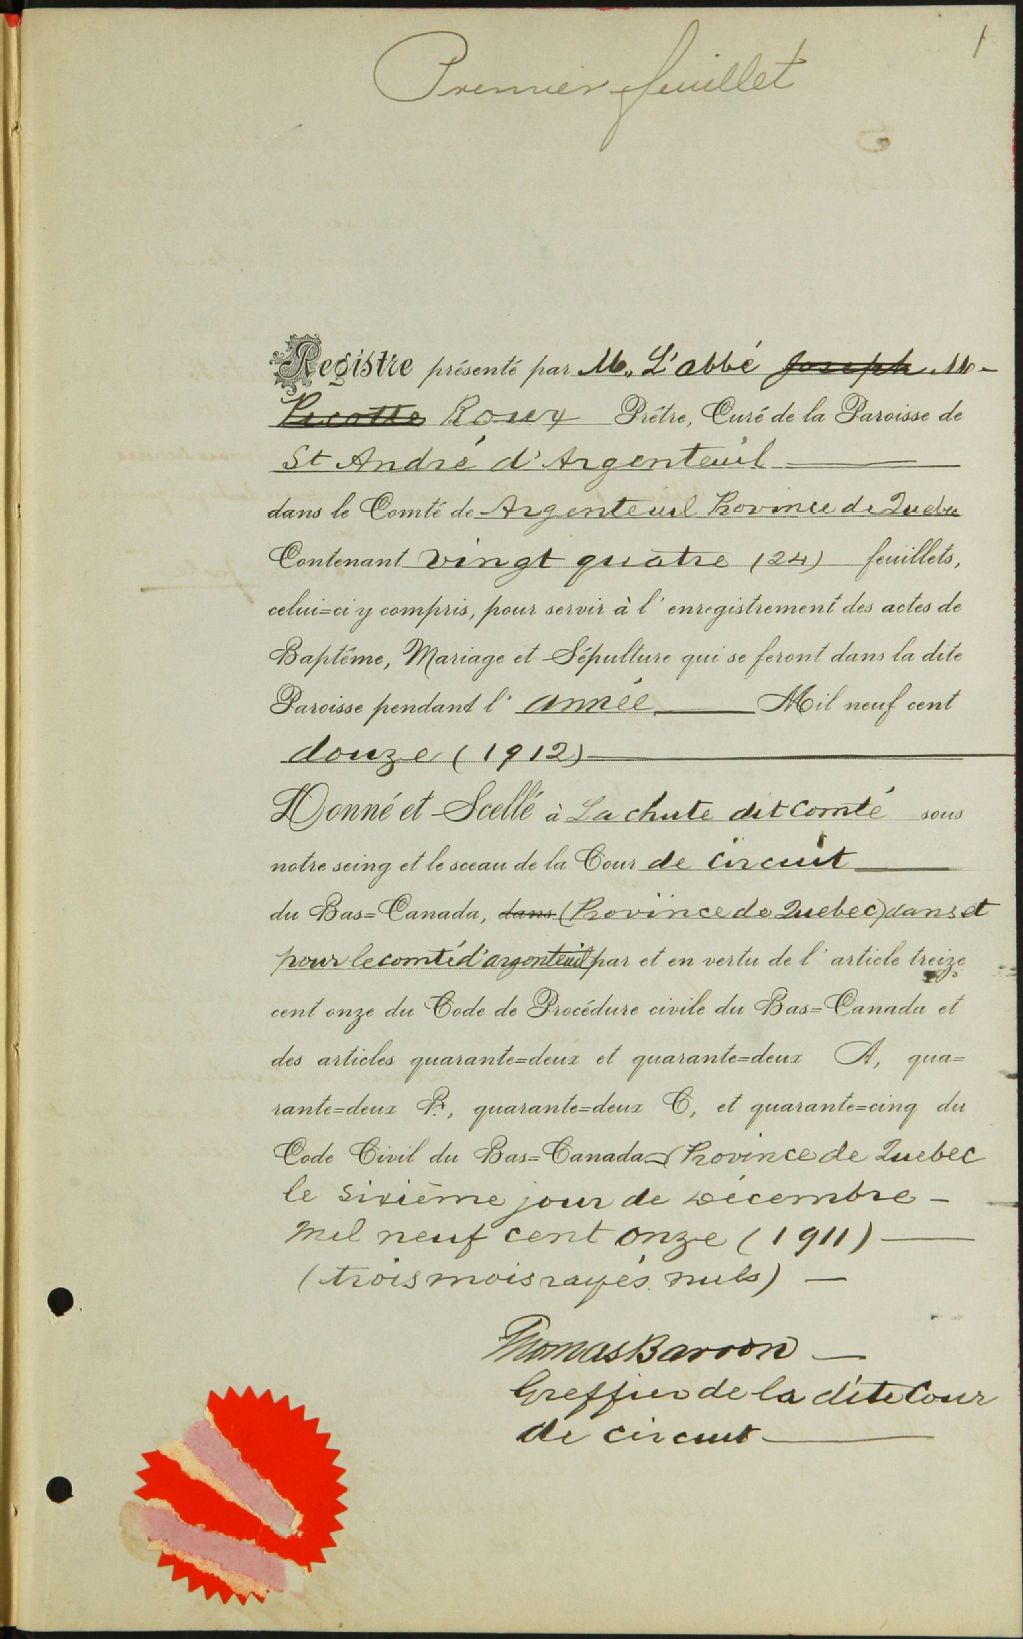 Premier feuillet
1
Registre présenté par M. L'abbé Joseph M-
Picotte Roux Prêtre, Curé de la Paroisse de
St André d'Argenteuil
dans le Comté de Argenteuil Province de Quebec
Contenant vingt quatre (24) feuillets,
celui=ci y compris, pour servir à l'enregistrement des actes de
Baptême, Mariage et Sépulture qui se feront dans la dite
Paroisse pendant l'année Mil neuf cent
douze (1912)
Donné et Scellé à Lachute dit comté sous
notre seing et le sceau de la Cour de circuit
du Bas=Canada, dans (Province de Quebec) dans et
pour le comté d'argenteuil par et en vertu de l'article treize
cent onze du Code de Procédure civile du Bas=Canada et
des articles quarante=deux et quarante=deux A, qua=
rante=deux B, quarante=deux C, et quarante=cinq du
Code Civil du Bas=Canada (Province de Quebec
le Sixième jour de Décembre -
Mil neuf cent onze (1911)
(trois mots rayés nuls) -
Thomas Barron
Greffier de la dite Cour
de circuit